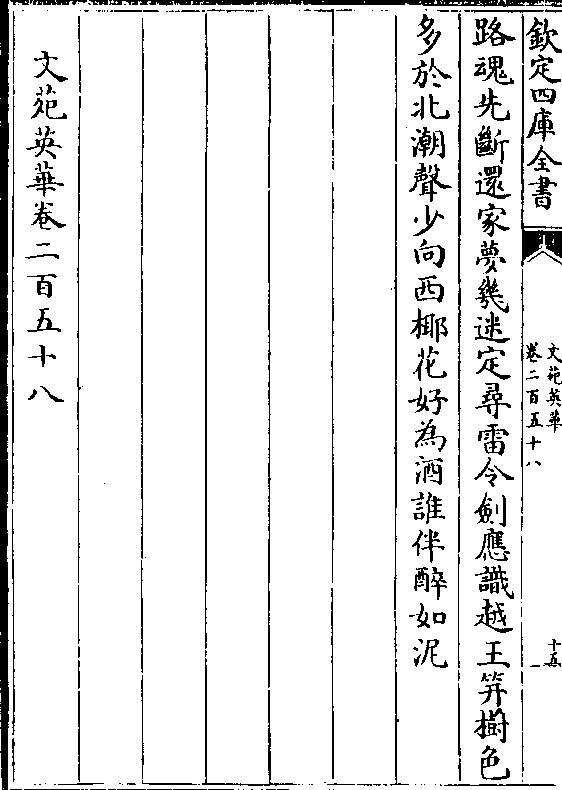 欽定四庫全書
文苑英華
卷二百五十八
十五
路魂先斷還家夢幾迷定尋雷令劍應識越王笄樹色
多於北潮聲少向西椰花好為酒誰伴醉如泥
文苑英華卷二百五十八